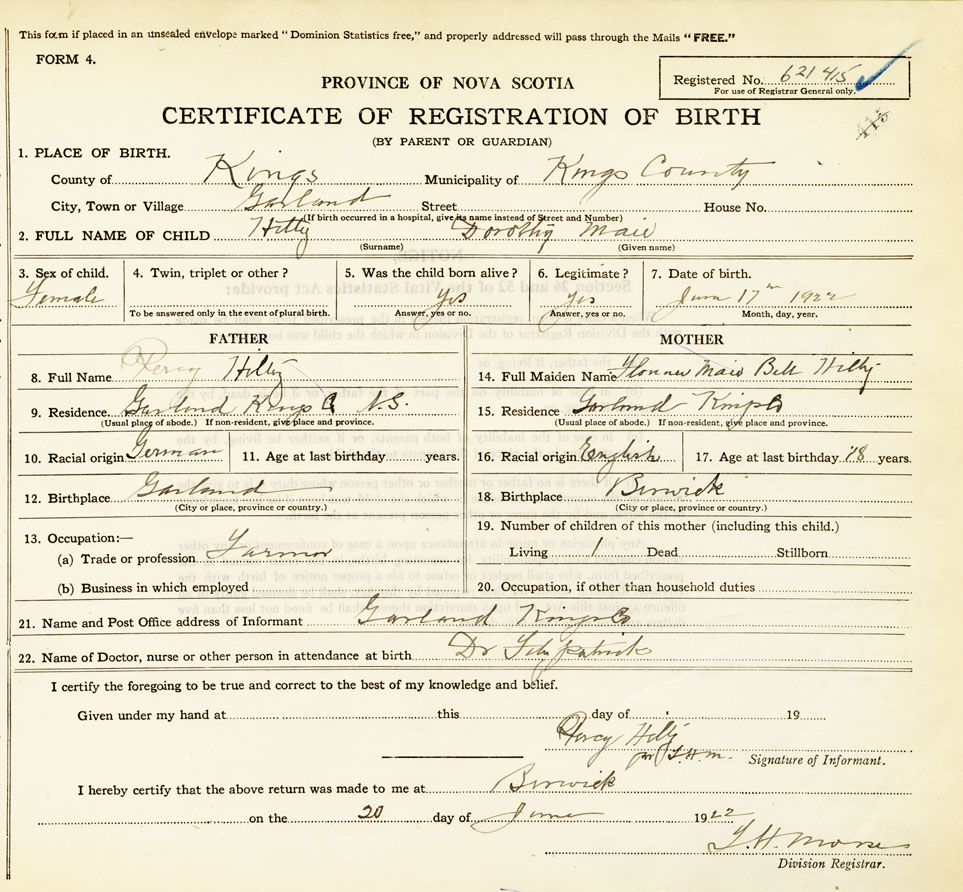 This form if placed in an unsealed envelope marked "Dominion Statistics free," and properly addressed will pass through the Mails "FREE."
FORM 4.
Registered No. 621415
For use of Registrar General only.
PROVINCE OF NOVA SCOTIA
CERTIFICATE OF REGISTRATION OF BIRTH
(BY PARENT OR GUARDIAN)
1. PLACE OF BIRTH.
County of Kings Municipality of Kings County
City, Town or Village Garland Street House No.
(If birth occurred in a hospital, give its name instead of Street and Number)
2. FULL NAME OF CHILD Hilty Dorothy Maie
(Surname) (Given name)
3. Sex of child. 4. Twin, triplet or other? 5. Was the child born alive? 6. Legitimate? 7. Date of birth.
Female Yes Yes June 17th 1922
To be answered only in the event of plural birth. Answer, yes or no. Answer, yes or no. Month, day, year.
FATHER MOTHER
8. Full Name Percy Hilty 14. Full Maiden Name Maie Bell Hilty
9. Residence Garland Kings Co N.S. 15. Residence Garland Kings Co
(Usual place of abode.) If non-resident, give place and province. (Usual place of abode.) If non-resident, give place and province.
10. Racial origin German 11. Age at last birthday years. 16. Racial origin English 17. Age at last birthday 18 years.
12. Birthplace Garland 18. Birthplace Berwick
(City or place, province or country.) (City or place, province or country.)
13. Occupation:— 19. Number of children of this mother (including this child.)
(a) Trade or profession Farmer Living 1 Dead Stillborn
(b) Business in which employed 20. Occupation, if other than household duties
21. Name and Post Office address of Informant Garland Kings Co
22. Name of Doctor, nurse or other person in attendance at birth Dr Fitzpatrick
I certify the foregoing to be true and correct to the best of my knowledge and belief.
Given under my hand at this day of 19
Percy Hilty
per T.H.M. Signature of Informant.
I hereby certify that the above return was made to me at Berwick
on the 20 day of June 1922
T. H. Morse
Division Registrar.